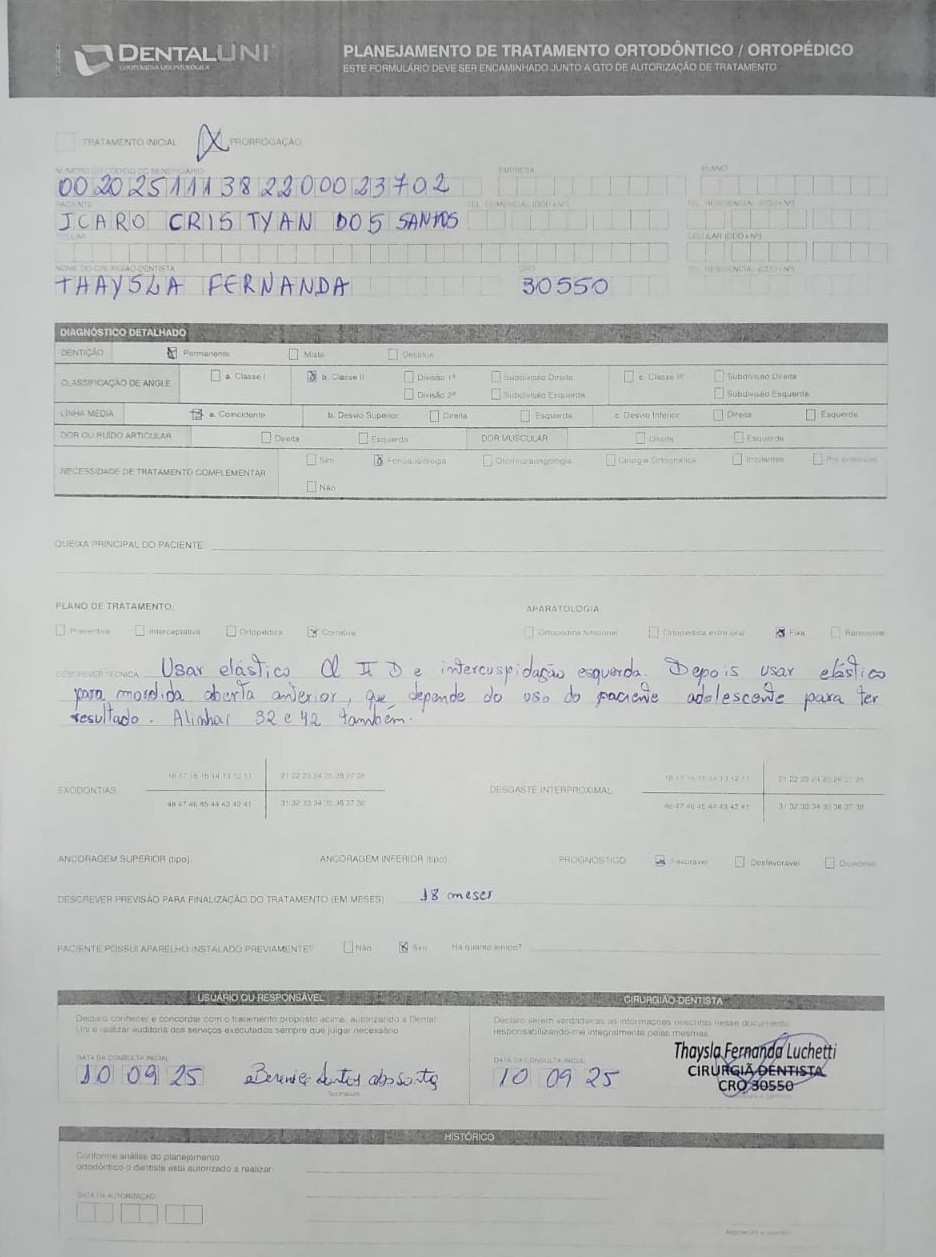 DENTALUNI
COOPERATIVA ODONTOLÓGICA
PLANEJAMENTO DE TRATAMENTO ORTODÔNTICO / ORTOPÉDICO
ESTE FORMULÁRIO DEVE SER ENCAMINHADO JUNTO A GTO DE AUTORIZAÇÃO DE TRATAMENTO
TRATAMENTO INICIAL PRORROGAÇÃO
NÚMERO DO CÓDIGO DO BENEFICIÁRIO EMPRESA PLANO
00202511138220002370 2
PACIENTE TEL. COMERCIAL (DDD+Nº) TEL. RESIDENCIAL (DDD+Nº)
ICARO CRISTYAN DOS SANTOS
TITULAR CELULAR (DDD+Nº)
NOME DO CIRURGIÃO-DENTISTA CRO TEL. RESIDENCIAL (DDD+Nº)
THAYSLA FERNANDA 30550
DIAGNÓSTICO DETALHADO
DENTIÇÃO Permanente Mista Decídua
CLASSIFICAÇÃO DE ANGLE a. Classe I b. Classe II Divisão 1ª Subdivisão Direita c. Classe III Subdivisão Direita
Divisão 2ª Subdivisão Esquerda Subdivisão Esquerda
LINHA MÉDIA a. Coincidente b. Desvio Superior Direita Esquerda c. Desvio Inferior Direita Esquerda
DOR OU RUÍDO ARTICULAR Direita Esquerda DOR MUSCULAR Direita Esquerda
NECESSIDADE DE TRATAMENTO COMPLEMENTAR Sim Fonoaudiologia Otorrinolaringologia Cirurgia Ortognática Implantes Pré-protéticos
Não
QUEIXA PRINCIPAL DO PACIENTE:
PLANO DE TRATAMENTO: APARATOLOGIA:
Preventiva Interceptativa Ortopédica Corretiva Ortopédica funcional Ortopédica extra oral Fixa Removível
DESCREVER TÉCNICA Usar elástico Cl II D e intercuspidação esquerda. Depois usar elástico
para mordida aberta anterior, que depende do uso do paciente adolescente para ter
resultado. Alinhar 32 e 42 também.
18 17 16 15 14 13 12 11 21 22 23 24 25 26 27 28 18 17 16 15 14 13 12 11 21 22 23 24 25 26 27 28
EXODONTIAS DESGASTE INTERPROXIMAL
48 47 46 45 44 43 42 41 31 32 33 34 35 36 37 38 48 47 46 45 44 43 42 41 31 32 33 34 35 36 37 38
ANCORAGEM SUPERIOR (tipo): ANCORAGEM INFERIOR (tipo): PROGNÓSTICO Favorável Desfavorável Duvidoso
DESCREVER PREVISÃO PARA FINALIZAÇÃO DO TRATAMENTO (EM MESES) 18 meses
PACIENTE POSSUI APARELHO INSTALADO PREVIAMENTE? Não Sim Há quanto tempo?
USUÁRIO OU RESPONSÁVEL CIRURGIÃO-DENTISTA
Declaro conhecer e concordar com o tratamento proposto acima, autorizando a Dental
Uni a realizar auditoria dos serviços executados sempre que julgar necessário
Declaro serem verdadeiras as informações descritas nesse documento,
responsabilizando-me integralmente pelas mesmas
DATA DA CONSULTA INICIAL DATA DA CONSULTA INICIAL
10 09 25 10 09 25
Thaysla Fernanda Luchetti
CIRURGIÃ DENTISTA
CRO 30550
HISTÓRICO
Conforme análise do planejamento
ortodôntico o dentista está autorizado a realizar:
DATA DA AUTORIZAÇÃO